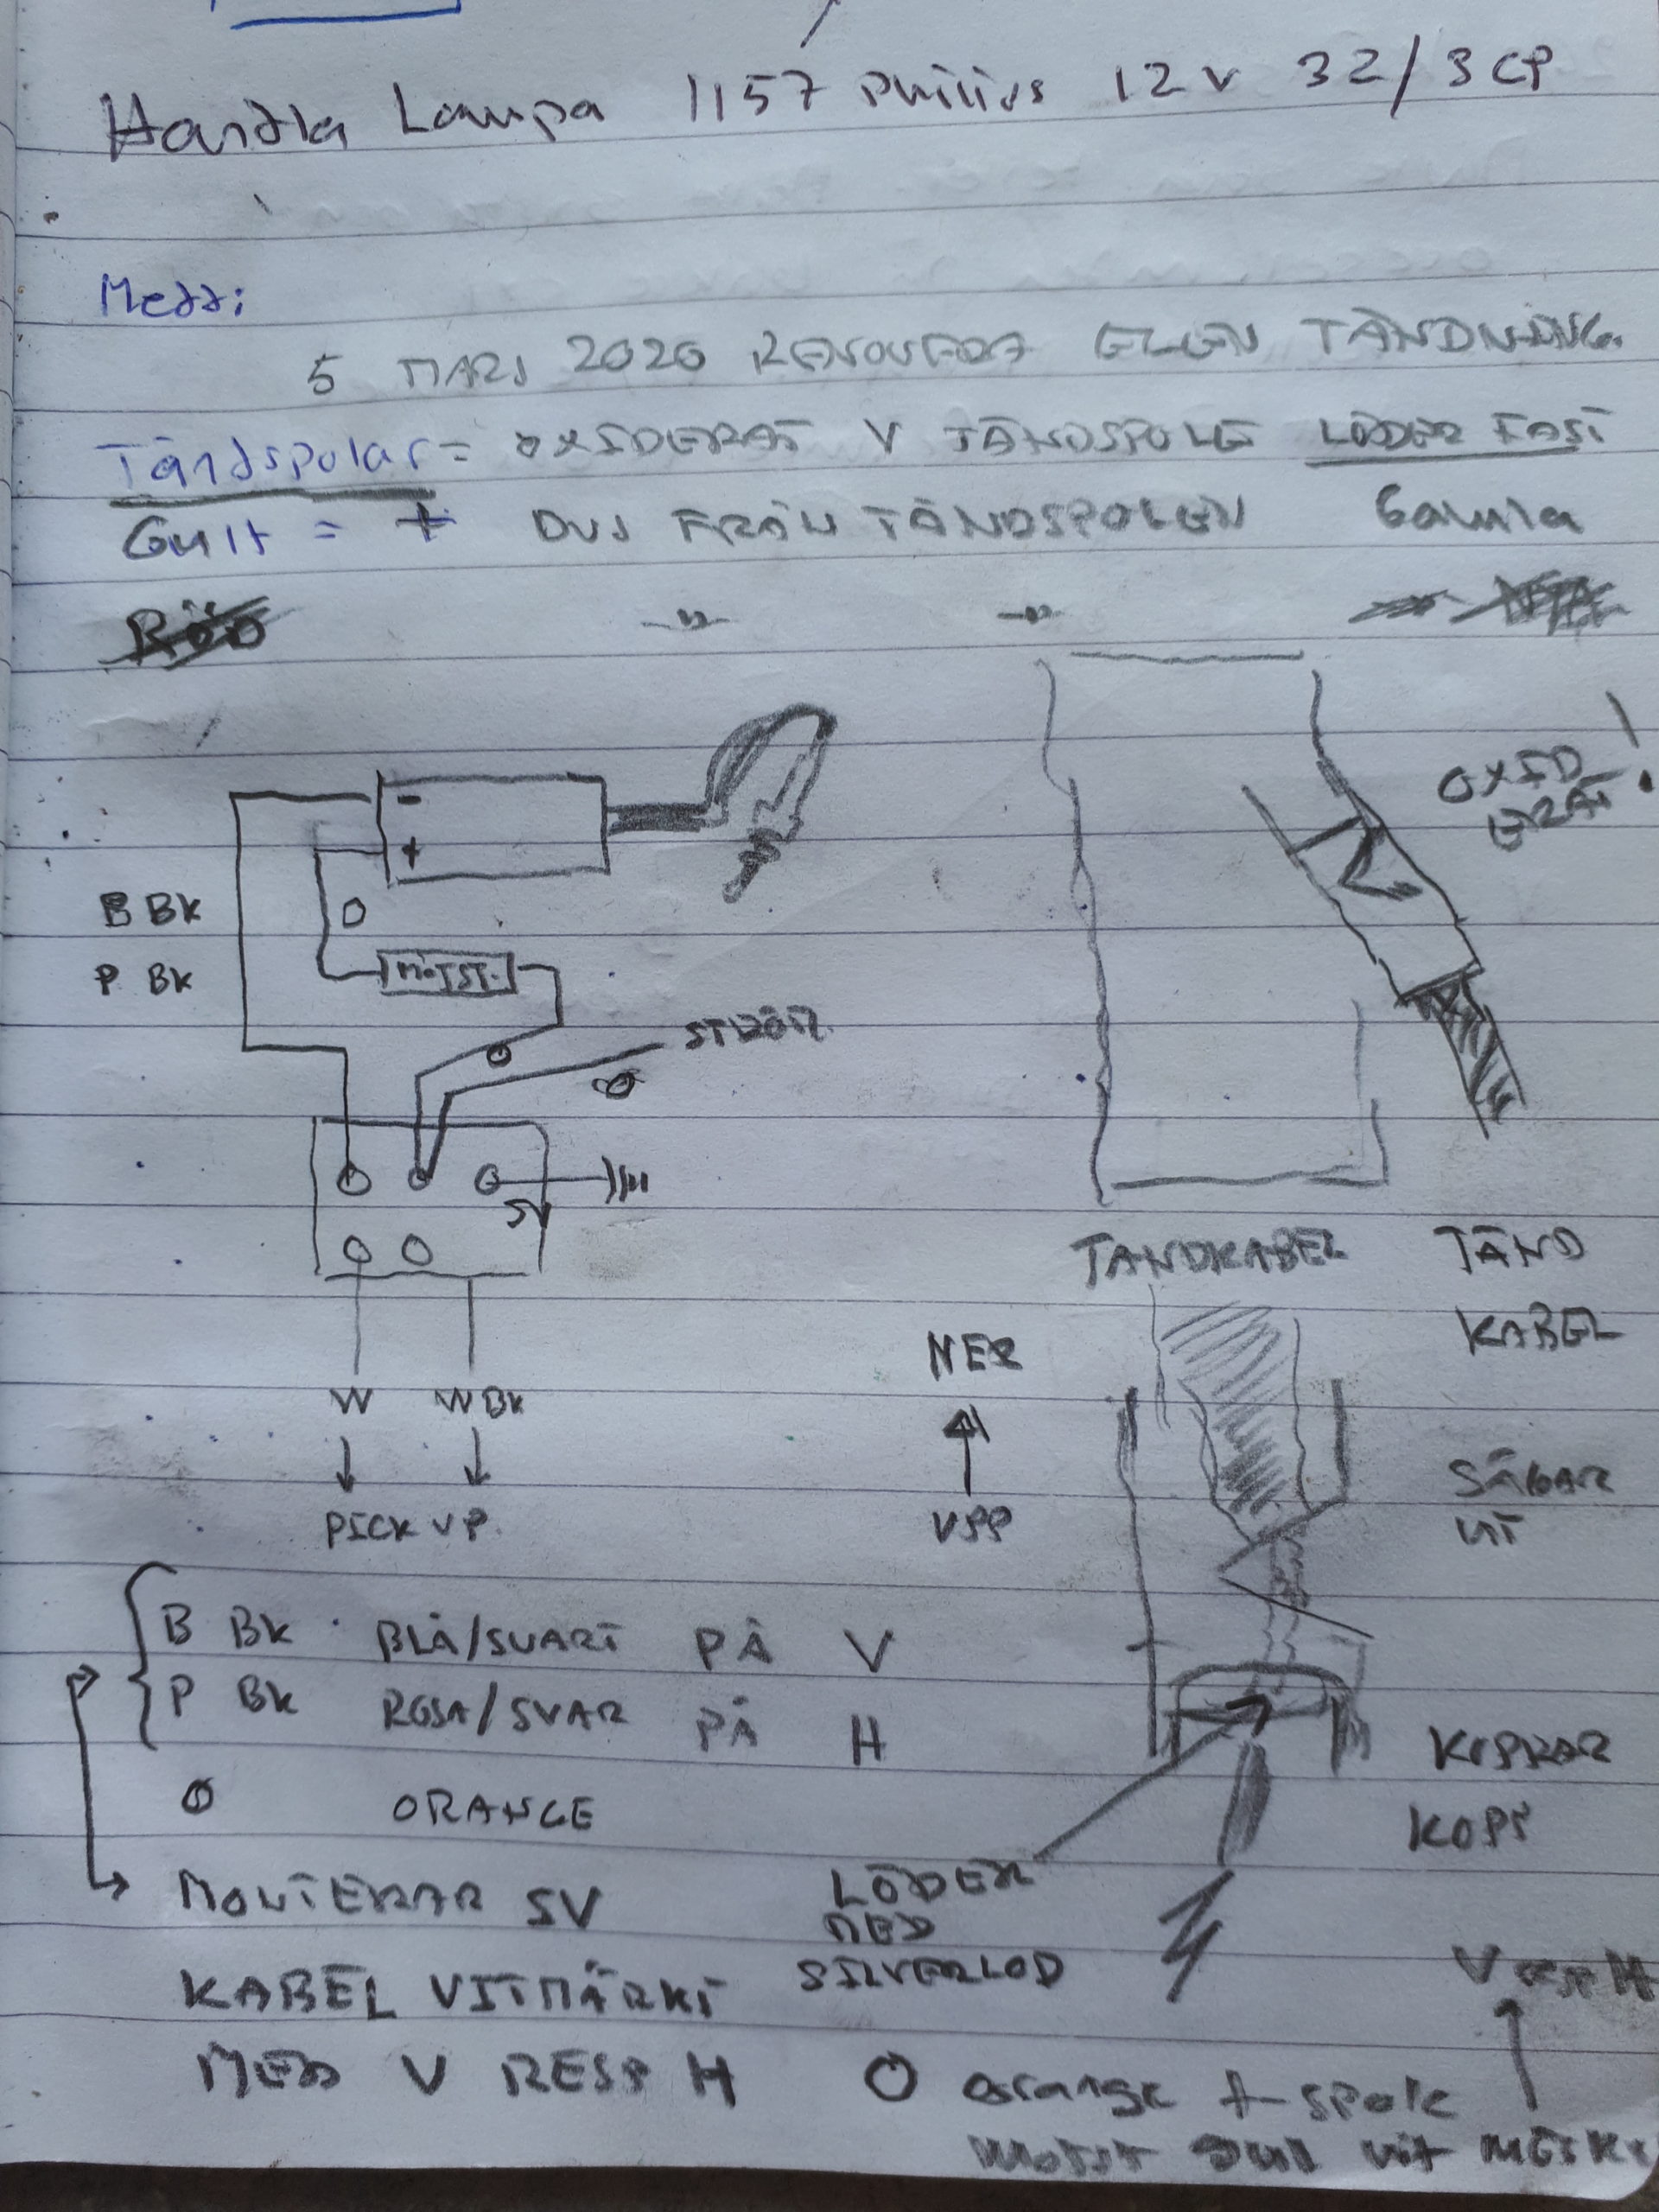 Handla Lampa 1157 Philips 12 V 32/3 CP
Medd:
5 MARS 2020 RENOVERA ELEN TÄNDNING
Tändspolar = OXIDERAT V TÄNDSPOLE LÖDER FAST
Gult = + DVS FRÅN TÄNDSPOLEN Gamla
RÖD -"- -"-
OXID
ERAT !
-
+
B BK
O
P BK
MOTST.
STRÖM
O
O
SV
TÄNDKABEL
TÄND
KABEL
NER
W W BK
SÅGAR
UT
PICK UP
UPP
B BK BLÅ/SVART PÅ V
P BK ROSA/SVAR PÅ H
KOPPAR
O ORANGE
KOPP
MONTERAR SV
LÖDER
MED
SILVERLOD
KABEL VITMÄRKT
V RESP H
MED V RESP H
O orange + spole
motst Gul vit märkt